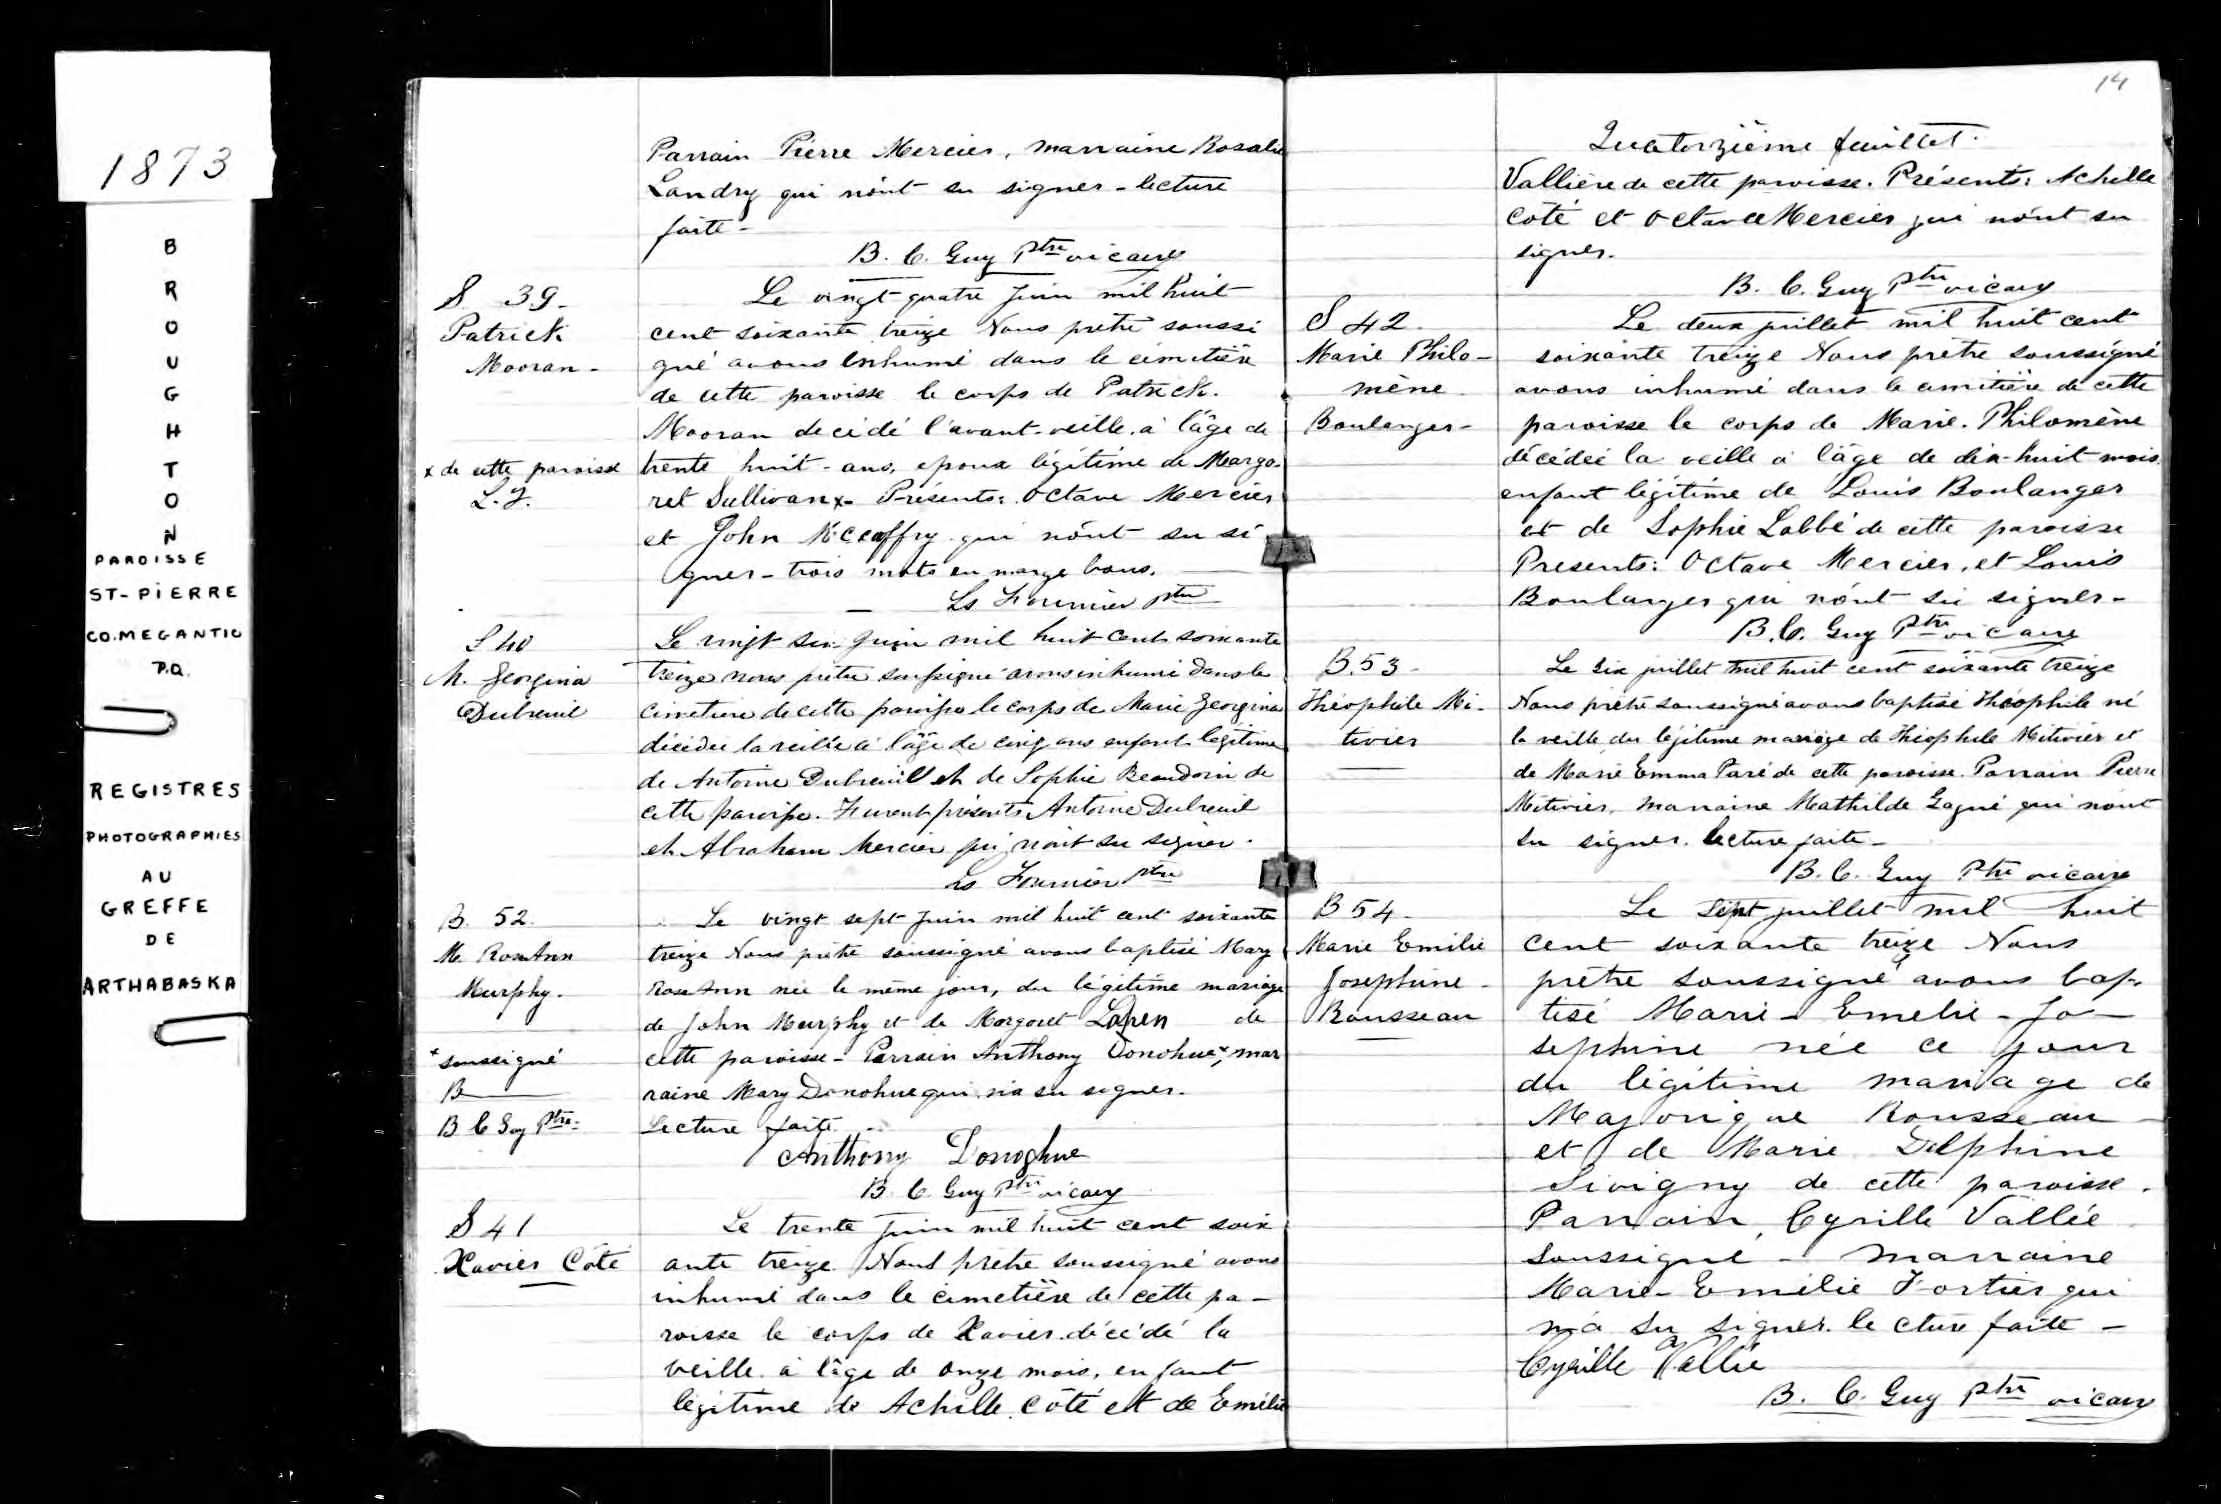 1873
B
R
O
U
G
H
T
O
N
PAROISSE
ST-PIERRE
CO. MEGANTIC
P.Q.
REGISTRES
PHOTOGRAPHIES
AU
GREFFE
DE
ARTHABASKA
Parrain Pierre Mercier, marraine Rosalie
Landry qui n'ont su signer - lecture
faite -
B. C. Guy Ptre vicaire
S 39 -
Patrick
Mooran -
Le vingt quatre Juin mil huit
cent soixante treize Nous prêtre soussi
gné avons inhumé dans le cimetière
de cette paroisse le corps de Patrick
Mooran decédé l'avant-veille à l'âge de
trente huit - ans, epoux légitime de Marga-
ret Sullivan x - Présents: Octave Mercier
et John McCaffry qui n'ont su si
gner - trois mots en marge bons.
x de cette paroisse
L. F.
Ls Fournier Ptre
S 40
M. Georgina
Dubreuil
Le vingt six Juin mil huit cent soixante
treize nous prêtre soussigné avons inhumé dans le
cimetiere de cette paroisse le corps de Marie Georgina
décédée la veille à l'âge de cinq ans enfant légitime
de Antoine Dubreuil et de Sophie Beaudoin de
cette paroisse. Furent présents Antoine Dubreuil
et Abraham Mercier qui n'ont su signer.
Ls Fournier Ptre
B. 52.
M. RoseAnn
Murphy.
Le vingt sept Juin mil huit cent soixante
treize Nous prêtre soussigné avons baptisé Mary
Rose Ann née le même jour, du légitime mariage
de John Murphy et de Margaret de
cette paroisse - Parrain Anthony Donohue x, mar
raine Mary Donohue qui n'a su signer.
Lecture faite -
x soussigné
B
B C Guy Ptre
Anthony Donoghue
B. C. Guy Ptre vicaire
S 41
Xavier Côté
Le trente Juin mil huit cent soix
ante treize Nous prêtre soussigné avons
inhumé dans le cimetière de cette pa -
roisse le corps de Xavier décédé la
veille à l'âge de onze mois, enfant
légitime de Achille Côté et de Emélie
14
Quatorzième feuillet.
Vallière de cette paroisse. Présents: Achille
Côté et Octave Mercier qui n'ont su
signer.
B. C. Guy Ptre vicaire
S 42.
Marie Philo -
mène
Boulanger -
Le deux juillet mil huit cent
soixante treize Nous prêtre soussigné
avons inhumé dans le cimitière de cette
paroisse le corps de Marie. Philomène
décédée la veille à l'âge de dix-huit mois
enfant légitime de Louis Boulanger
et de Sophie Labbé de cette paroisse
Presents: Octave Mercier, et Louis
Boulanger qui n'ont su signer -
B. C. Guy Ptre vicaire
B. 53 -
Théophile Mi -
tivier
Le six juillet mil huit cent soixante treize
Nous prêtre soussigné avons baptisé Théophile né
la veille du légitime mariage de Théophile Mitivier et
de Marie Emma Paré de cette paroisse. Parrain Pierre
Mitivier, marraine Mathilde Gagné qui n'ont
su signer. lecture faite -
B. C. Guy Ptre vicaire
B 54 -
Marie Emilie
Josephine -
Rousseau
Le sept juillet mil huit
cent soixante treize Nous
prêtre soussigné avons bap-
tisé Marie - Emelie - Jo -
sephine née ce jour
du légitime mariage de
Majorique Rousseau
et de Marie Delphine
Sivigny de cette paroisse.
Parrain, Cyrille Vallée
soussigné - marraine
Marie - Emélie Fortier qui
n'a su signer. lecture faite -
Cyrille Vallée
B. C. Guy Ptre vicaire